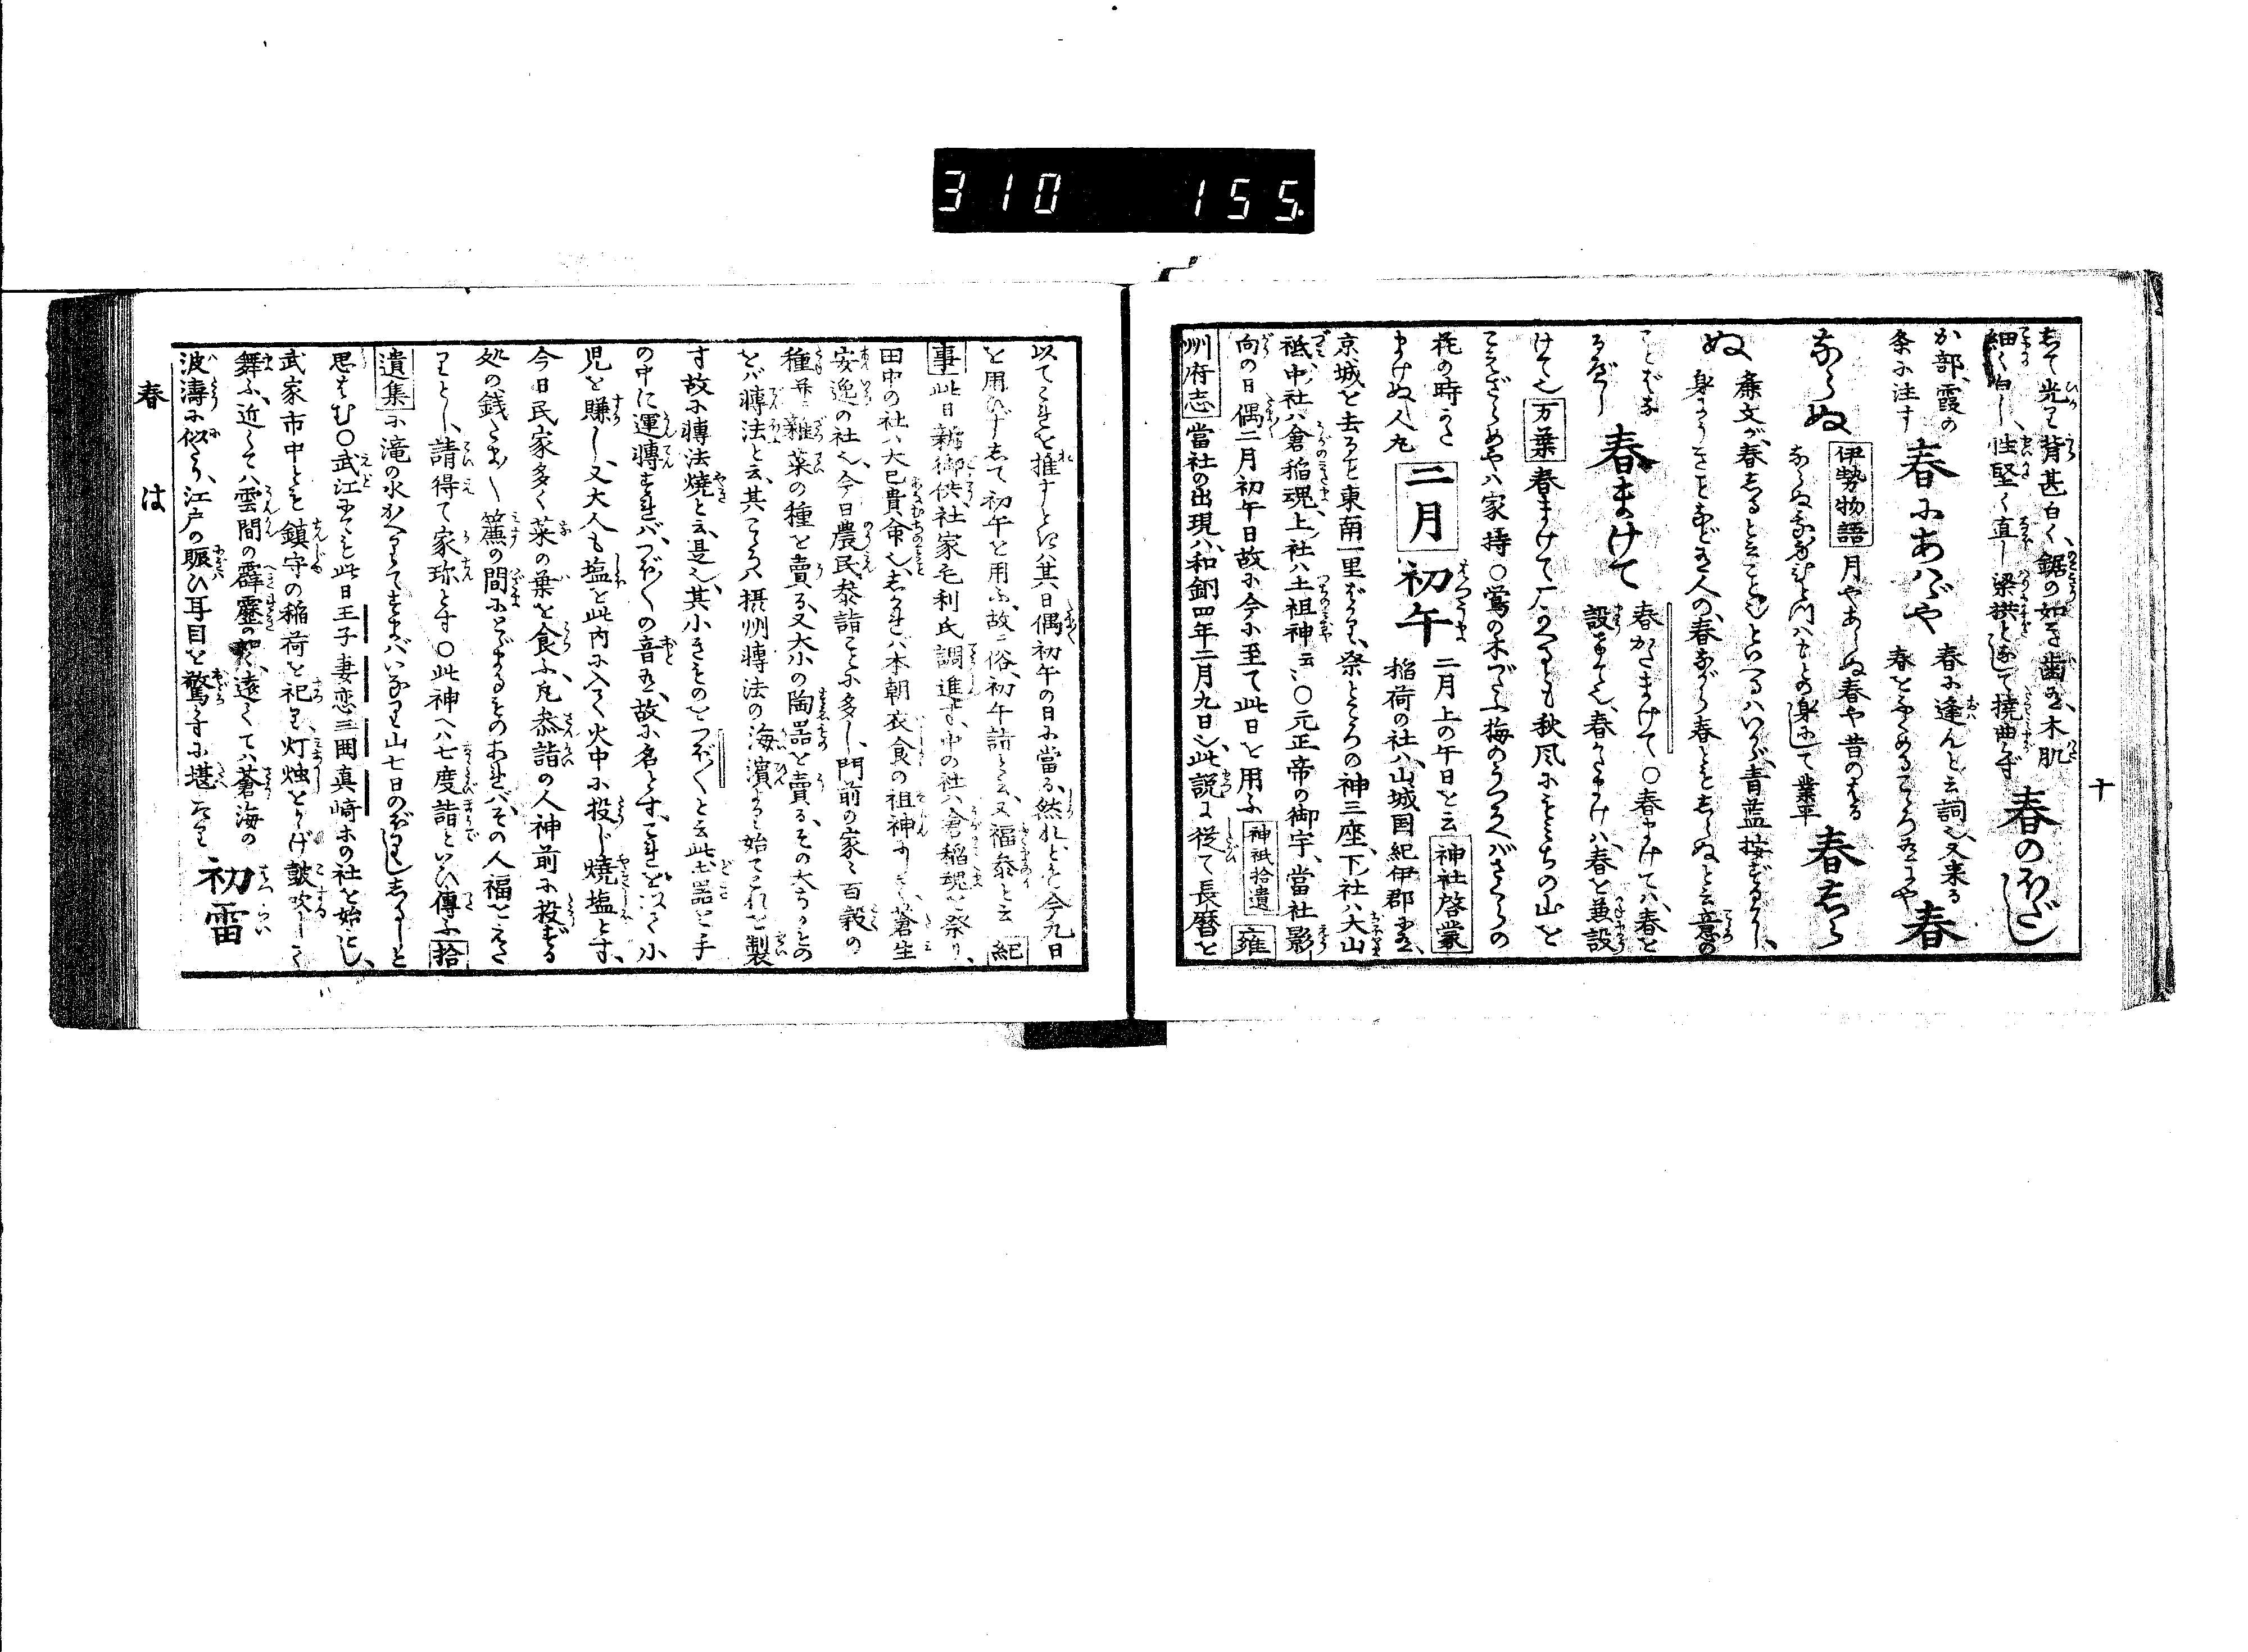 310 155.
十
して光り背甚白く、鋸の如き歯有、木肌
細く白し、性堅く直し梁拱と為して撓曲らず 春のほだし
か部、霞の
条に注す 春にあはゞや 春に逢んと云詞也又来る
春とふくめるこゝろ有にや 春
ならぬ 伊勢物語 月やあらぬ春や昔のはる
ならぬ我身ひとつはもとの身にして 業平 春しら
ぬ 康文が、春しるといふことしといへるはいかゞ、青藍按ずるに、
身にうきことなどある人の、春ながら春ともしらぬと云意の
ことばなるべし 春まけて 春かたまけて○春まけては、春を
設まて也、春かたまけは、春を兼設
けて也 万葉 春まけてかくかへるとも秋風にもみぢの山を
こえざらめやは 家持○鶯の木づたふ梅のうつろへばさくらの
花の時かた
まけぬ 人丸 二月 初午 二月上の午日を云 神社啓蒙
稲荷の社ハ、山城国紀伊郡に有、
京城を去ること東南一里ばかり、祭ところの神三座、下社ハ大山
祇、中社ハ倉稲魂、上社ハ土祖神云〻○元正帝の御宇、當社影
向の日偶二月初午日故に今に至て此日を用ふ 神祇拾遺 雍
州府志 當社の出現ハ、和銅四年二月九日也、此説に従て長暦を
以てこれを推すときハ其日偶初午の日に當る、然れども今九日
を用ひずして初午を用ふ、故ニ俗、初午詣と云、又福参と云 紀
事 此日新御供、社家毛利氏調進す、中の社ハ倉稲魂を祭り、
田中の社ハ大己貴命也、しかれバ本朝衣食の祖神にして蒼生
安逸の社也、今日農民参詣ことに多し、門前の家〻百穀の
種并ニ雑菜の種を賣る、又大小の陶器を賣る、その大なるもの
をバ轉法と云、其ころハ摂州轉法の海濱より始てこれを製
す故に轉法焼と云、是也、其小きものをつぼ〱と云此土器を手
の中に運轉すれバ、つぼ〱の音有、故に名とす、これを以て小
児を賺し、又大人も塩を此内に入て火中に投じ焼塩とす、
今日民家多く菜の葉を食ふ、凡参詣の人神前に投ずる
処の銭たま〱簾の間にとゞまるものあれバ、その人福をえた
りとし、請得て家珎とす○此神へハ七度詣といひ傳ふ 拾
遺集 に滝の水かへりてすまバいなり山七日のぼれるしるしと
思はむ○武江にても此日王子妻恋三囲真崎ホの社を始とし、
武家市中とも鎮守の稲荷を祀り、灯燭をかゝげ鼓吹して
舞ふ、近くてハ雲間の霹靂の如く、遠くてハ蒼海の
波濤に似たり、江戸の賑ひ耳目を驚すに堪たり 初雷
春 は